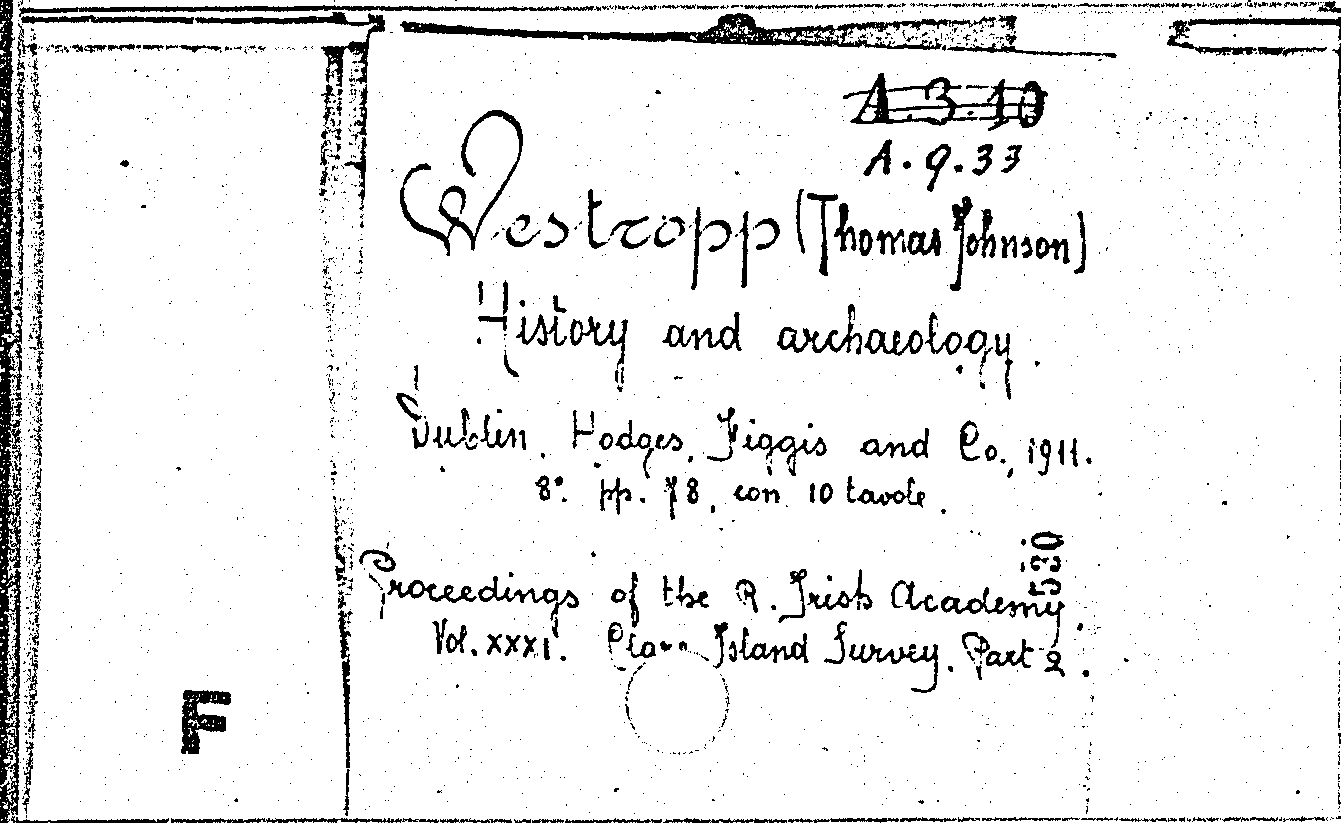 A.3.10
A.9.33
Westropp (Thomas Johnson)
History and archaeology.
Dublin, Hodges, Figgis and Co., 1911.
8°. pp. 78, con 10 tavole.
530
Proceedings of the R. Irish Academy.
Vol. XXXI. Clare Island Survey. Part 2.
F